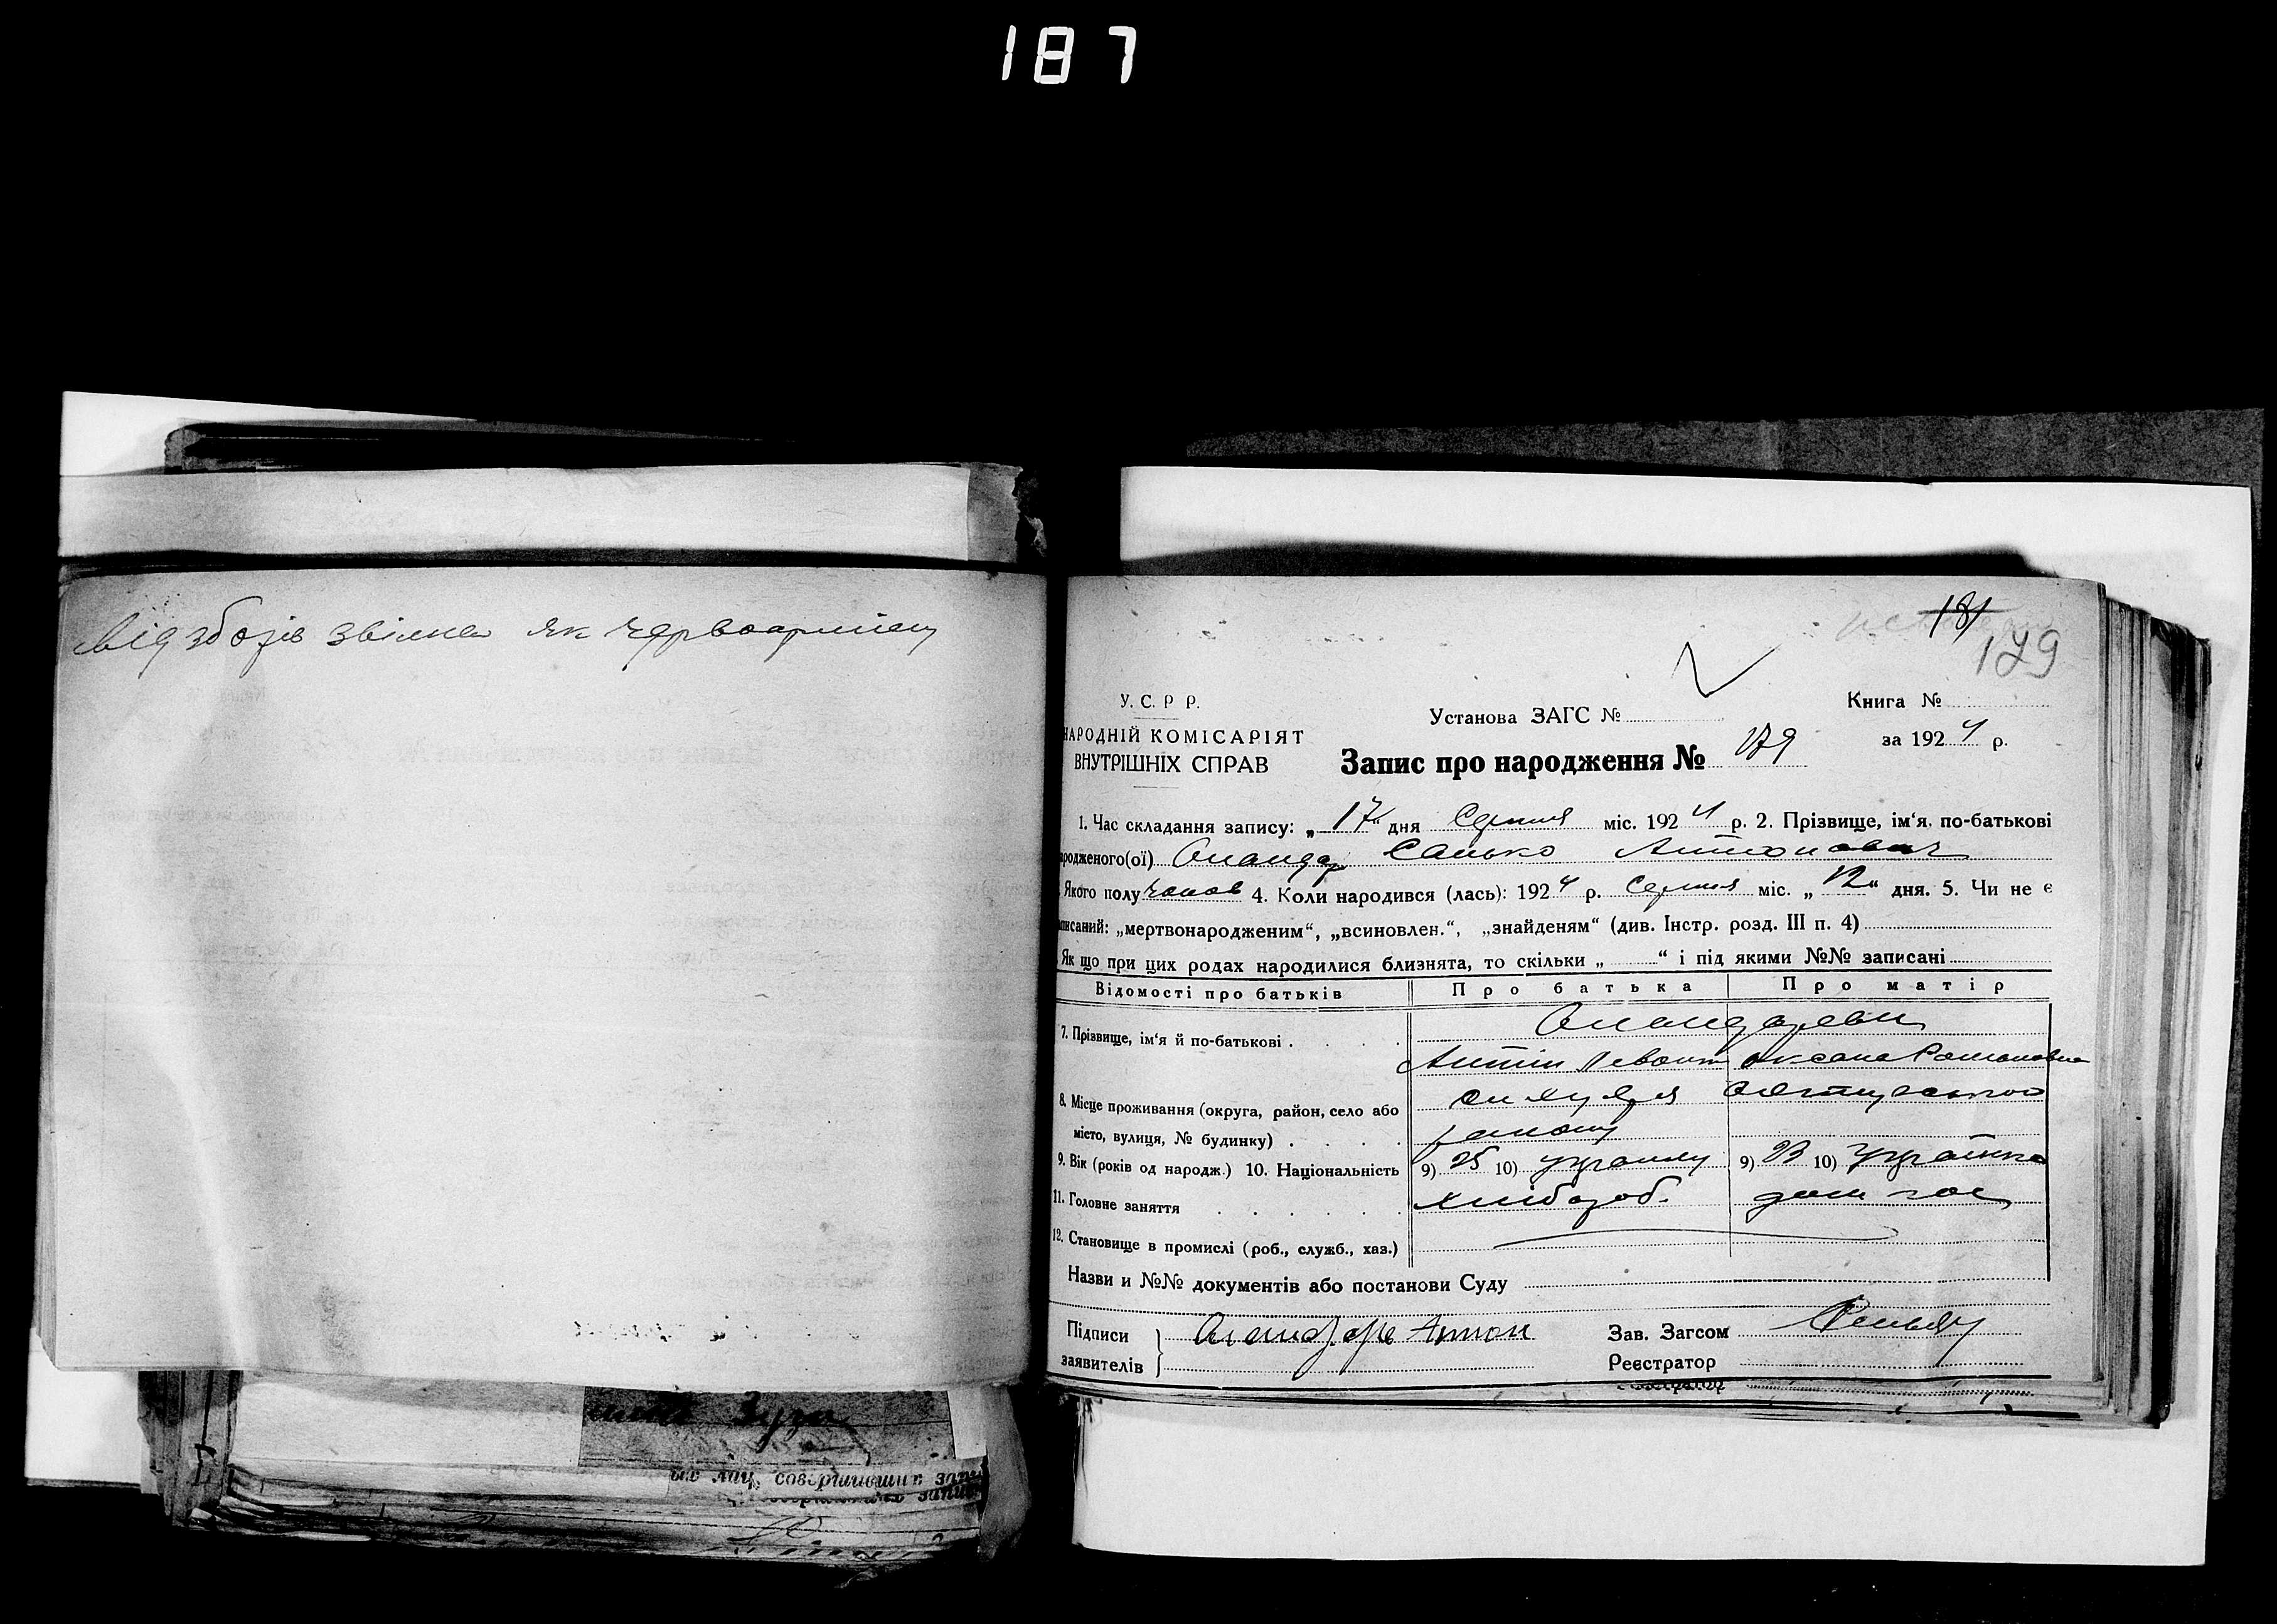 187
Від зборів звільнен як червоармієц
181
179
У. С. Р. Р.
НАРОДНІЙ КОМІСАРІЯТ
ВНУТРІШНІХ СПРАВ
Установа ЗАГС №
Книга №
за 1924 р.
Запис про народження № 179
1. Час складання запису: „17" дня Серпня міс. 1924 р. 2. Прізвище, ім'я, по-батькові
родженого(ої) Санько Антонович
Якого полу чолов 4. Коли народився (лась): 1924 р. Серпня міс. „12" дня. 5. Чи не є
писаний: „мертвонародженим", „всиновлен.", „знайденям" (див. Інстр. розд. III п. 4)
Як що при цих родах народилися близнята, то скільки „ " і під якими №№ записані
Відомості про батьків Про батька Про матір
7. Прізвище, ім'я й по-батькові
Антін Оксана Романовна
8. Місце проживання (округа, район, село або
місто, вулиця, № будинку) району
9. Вік (років од народж.) 10. Національність 9) 25 10) 9) 23 10) Українка
11. Головне заняття хлібороб. дом гос
12. Становище в промислі (роб., служб., хаз.)
Назви и №№ документів або постанови Суду
Підписи
заявителів
Антон
Зав. Загсом
Реєстратор
Реєстратор
лиц, совершивших запи